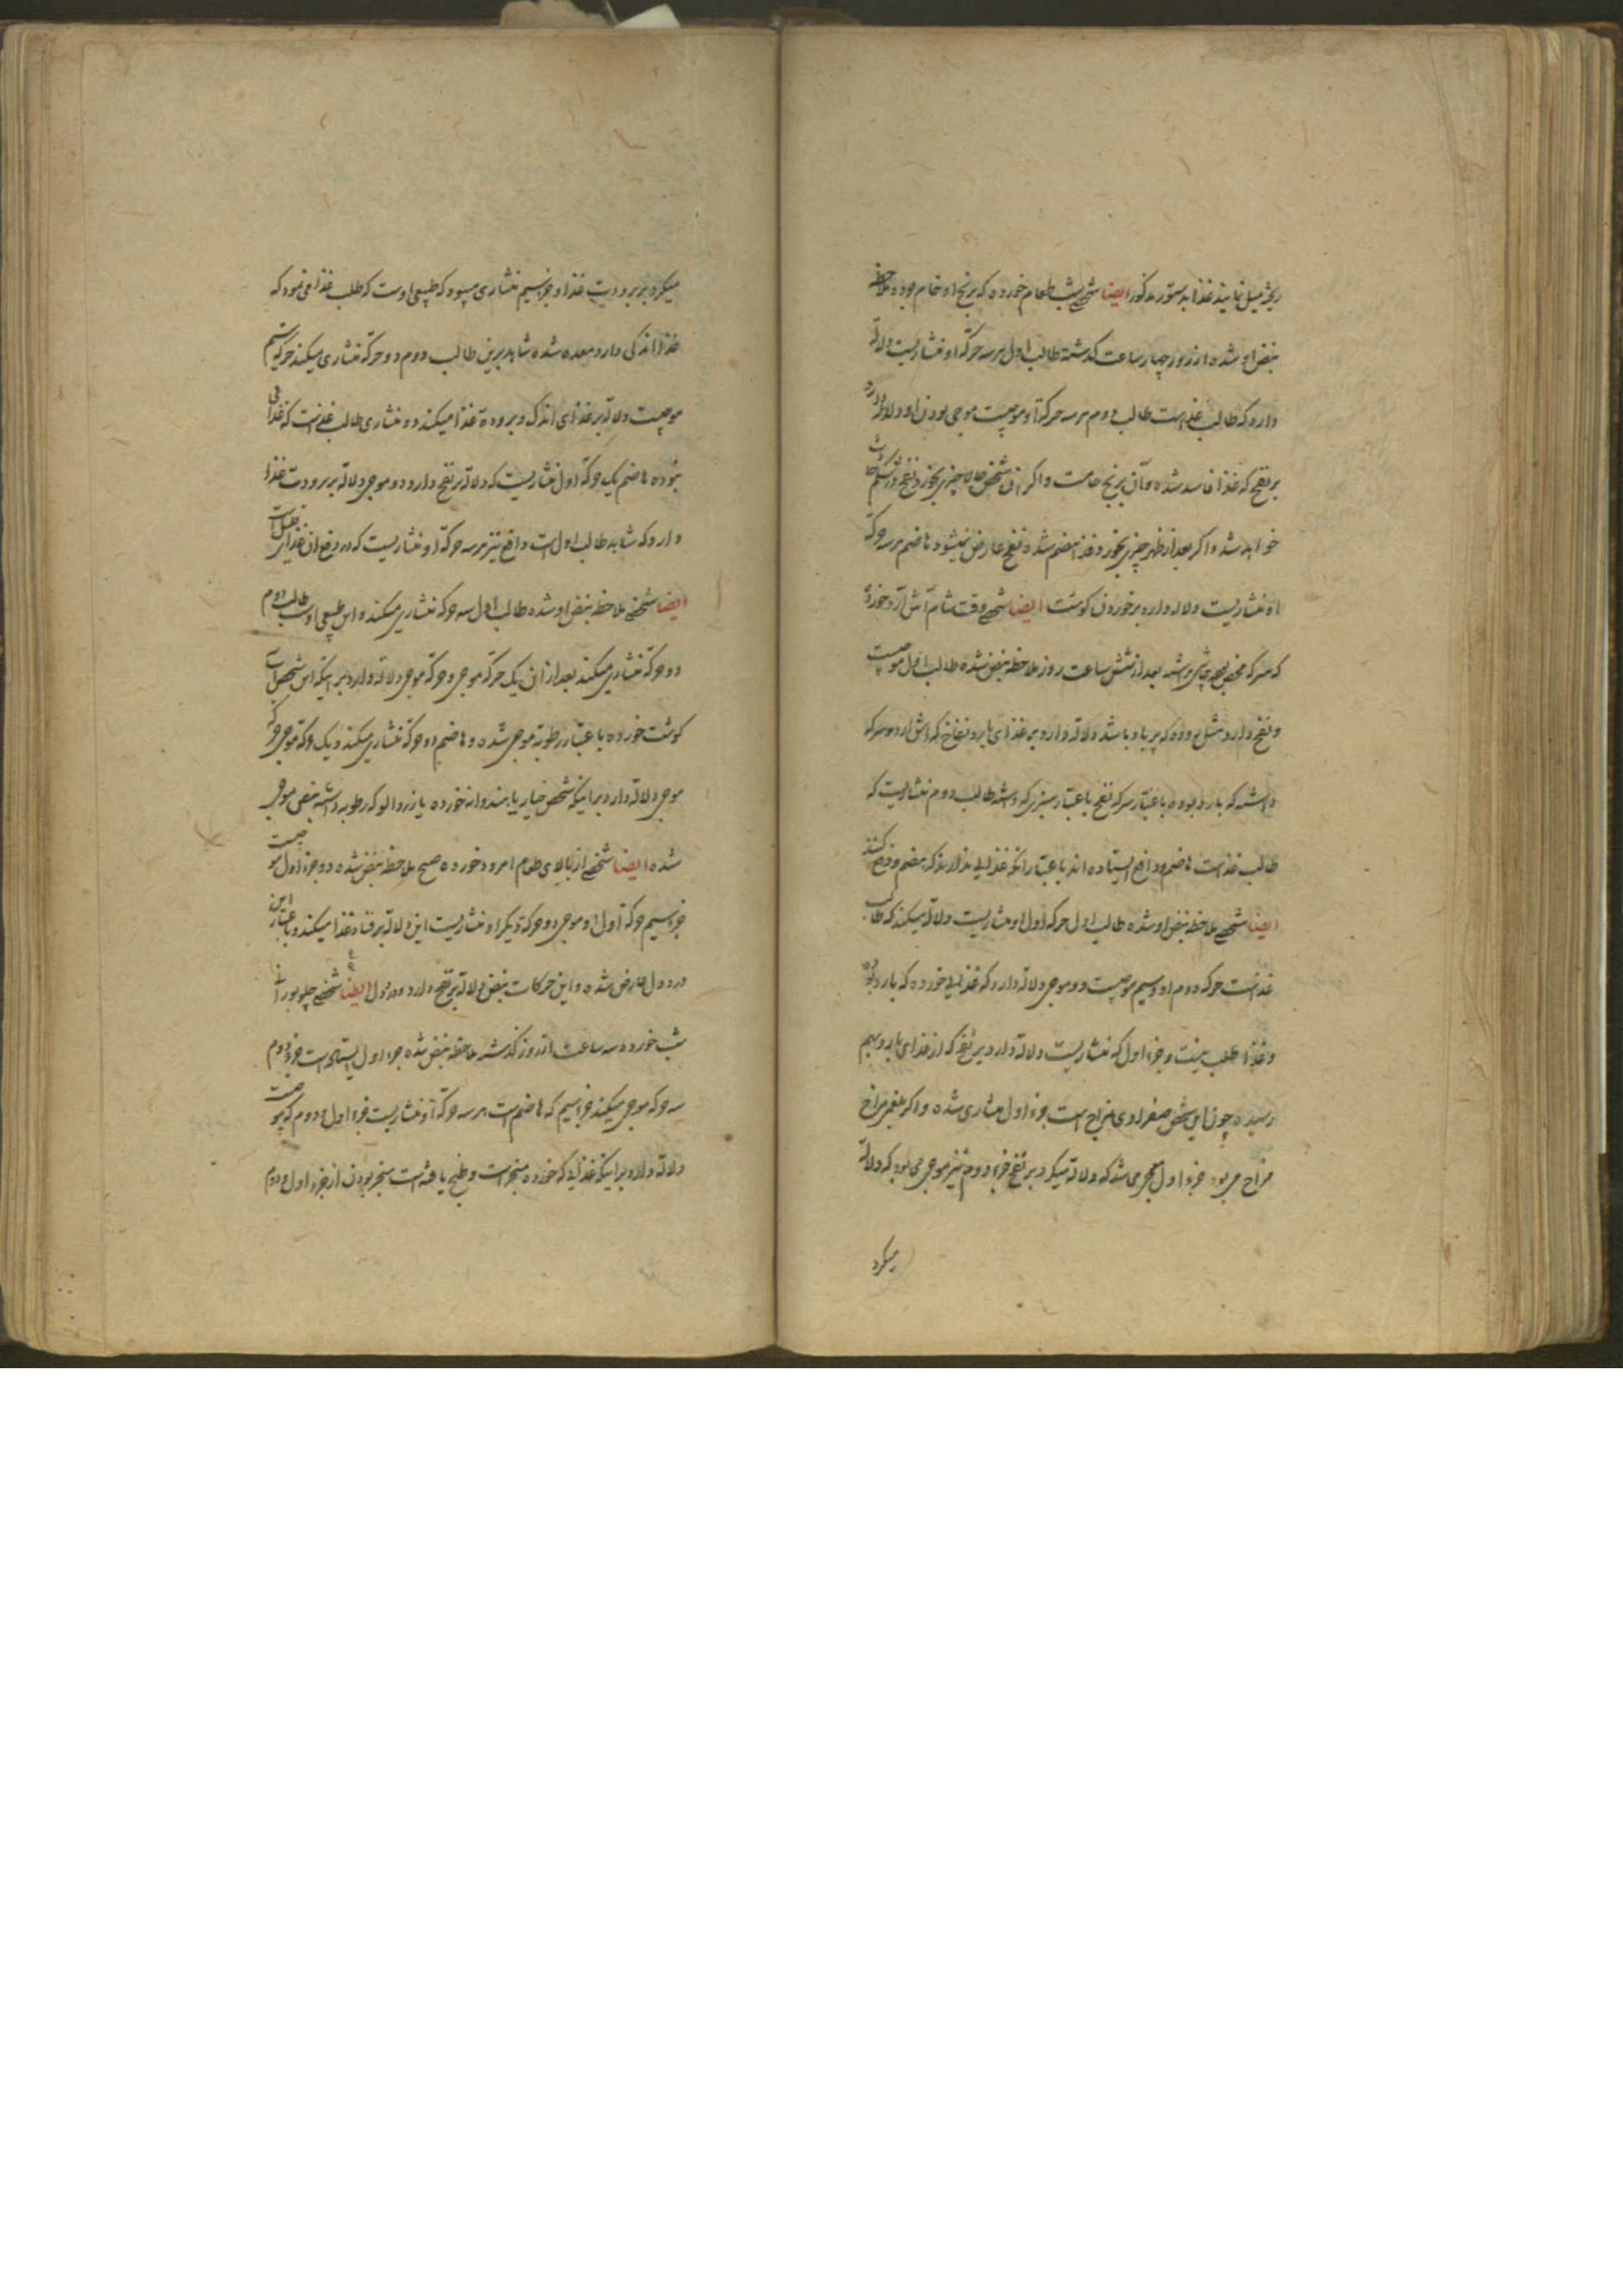 ریخته میل نمایند غذا بدستور مذکور ایضا شخصی شب طعام خورده که برنج او خام بوده ملاحظه
نبض او شده از روز چهار ساعت گذشته طالب اول هر سه حرکة او منشاریست دلالة
دارد که طالب غذاست طالب دوم هر سه حرکة او موجیست موجی بودن او دلالة دارد
بر نفخ که غذا فاسد شده و آن برنج خامست و اگر این شخص حالا چیزی بخورد نفخ در شکم حادث
خواهد شد و اگر بعد از ظهر چیزی بخورد غذا هضم شده نفخ عارض نمیشود هاضم هر سه حرکة
او منشاریست دلالة دارد بر خوردن کوشت ایضا شخصی وقت شام آش آرد خورده
که سرکه بعد از شش ساعت روز ملاحظه نبض شده طالب اول موجیست
و نفخ دارد مثل روده که پر باد باشد دلالة دارد بر غذای بارد نفاخ که آش آرد و سرکه
داشته که بارد بوده باعتبار سرکه نفخ باعتبار سبزی که داشته طالب دوم منشاریست که
طالب غذاست هاضم و دافع ایستاده اند باعتبار آنکه غذایی ندارند که هضم و دفع کنند
ایضا شخصی ملاحظه نبض او شده طالب اول حرکه اول او منشاریست دلالة میکند که طالب
غذاست حرکه دوم او و سیم موجیست و موجی دلالة دارد که غذایی خورده که بارد بوده
و غذا طلب نیست و جزء اول که منشاریست دلالة دارد بر نفخ که از غذای بارد بهم
رسیده چون این شخص صفراوی مزاج است جزء اول منشاری شده و اگر بلغمی مزاج
مزاج می بود جزء اول موجی می شد که دلالة میکرد بر نفخ جزء دوم نیز موجی می بود که دلالة
میکرد
میکرد بر برودت غذا و جزء سیم منشاری میبود که طبیعی اوست که طلب غذا می نمود که
غذا اندکی دارد معده شده شاهد برین طالب دوم دو حرکة منشاری میکند حرکة سیم
موجیست دلالة بر غذای اندک و برودة غذا میکند دو منشاری طالب غذاست که غذا
نبوده هاضم یک حرکة اول منشاریست که دلالة بر نفخ دارد دو موجی دلالة بر برودت غذا
دارد که شاهد طالب اول است دافع نیز هر سه حرکة او منشاریست که در دفع آن غذای قلیل است
ایضا شخصی ملاحظه نبض او شده طالب اول سه حرکة منشاری میکند و این طبیعی اوست طالب دوم
دو حرکة منشاری میکند بعد از آن یک حرکة موجی و حرکة موجی دلالة دارد بر اینکه این شخص آب
کوشت خورده باعتبار رطوبة موجی شده و هاضم دو حرکة منشاری میکند و یک حرکة موجی حرکة
موجی دلالة دارد بر اینکه شخص خیار یا هندوانه خورده یا زردالو که رطوبة داشته نبض موجی
شده ایضا شخصی از بالای طعام امرود خورده صبح ملاحظه نبض شده دو جزء اول موجیست
جزء سیم حرکة اول او موجی دو حرکة دیگر او منشاریست این دلالة بر فساد غذا میکند و باعتبار این
درد دل عارض شده و این حرکات نبض دلالة بر نفخ دارد و درد دل ایضا شخصی چلو بورانی
شب خورده سه ساعت از روز گذشته ملاحظه نبض شده جزء اول ایستاده است جزء دوم
سه حرکه موجی میکند جزء سیم که هاضم است هر سه حرکة او منشاریست جزء اول و دوم که موجیست
دلالة دارد بر اینکه غذایی که خورده منجر است و طبخ یافته است منجر بودن از جزء اول و دوم